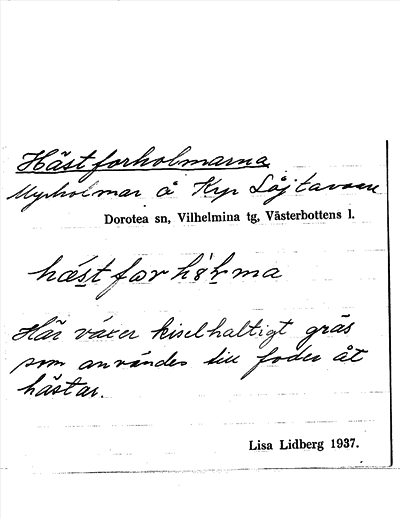 Hästforholmarna
Myrholmar å Kyr Löjtavaen
Dorotea sn, Vilhelmina tg, Västerbottens l.
hæstforhölma
Här växer kiselhaltigt gräs
som användes till foder åt
hästar.
Lisa Lidberg 1937.